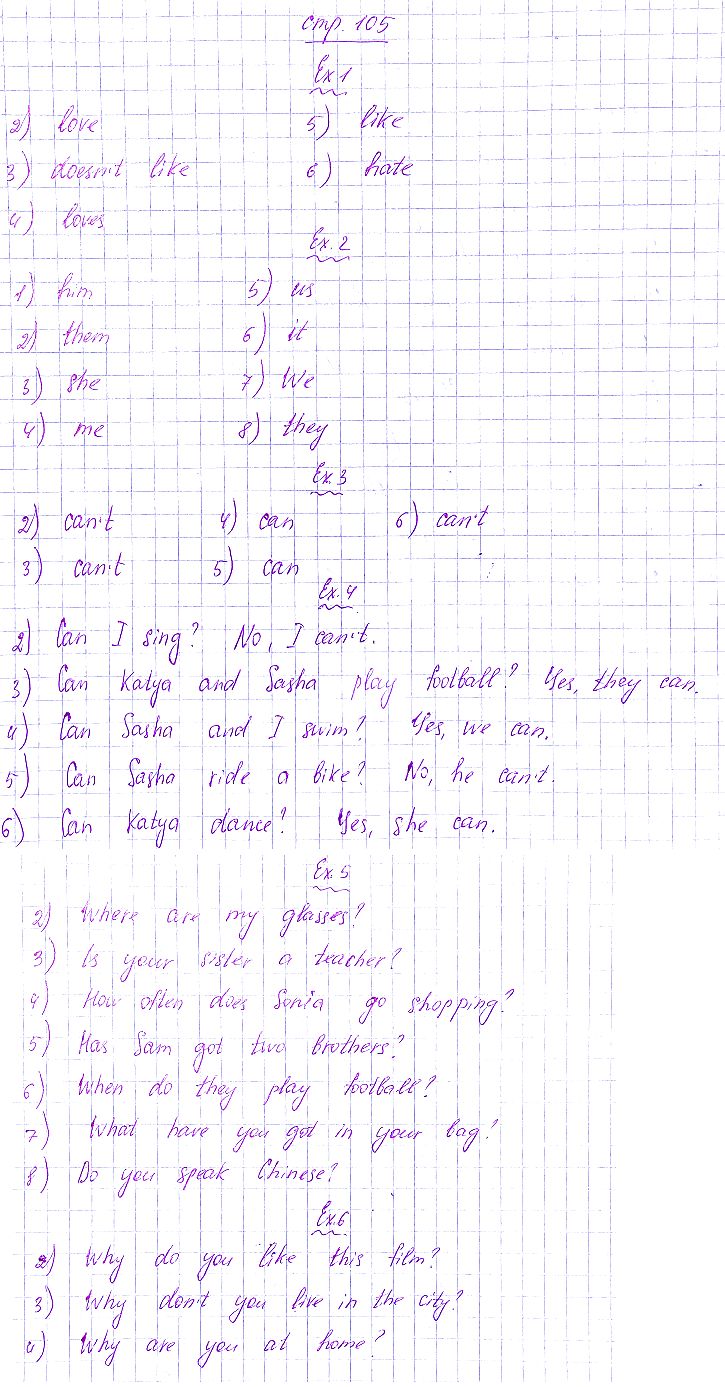 стр. 105
Ex 1
2) love 5) like
3) doesn't like 6) hate
4) loves
Ex. 2
1) him 5) us
2) them 6) it
3) she 7) We
4) me 8) they
Ex. 3
2) can't 4) can 6) can't
3) can't 5) can
Ex. 4
2) Can I sing? No, I can't.
3) Can Katya and Sasha play football? Yes, they can.
4) Can Sasha and I swim? Yes, we can.
5) Can Sasha ride a bike? No, he can't.
6) Can Katya dance? Yes, she can.
Ex. 5
2) Where are my glasses?
3) Is your sister a teacher?
4) How often does Sonia go shopping?
5) Has Sam got two brothers?
6) When do they play football?
7) What have you got in your bag?
8) Do you speak Chinese?
Ex. 6
2) Why do you like this film?
3) Why don't you live in the city?
4) Why are you at home?